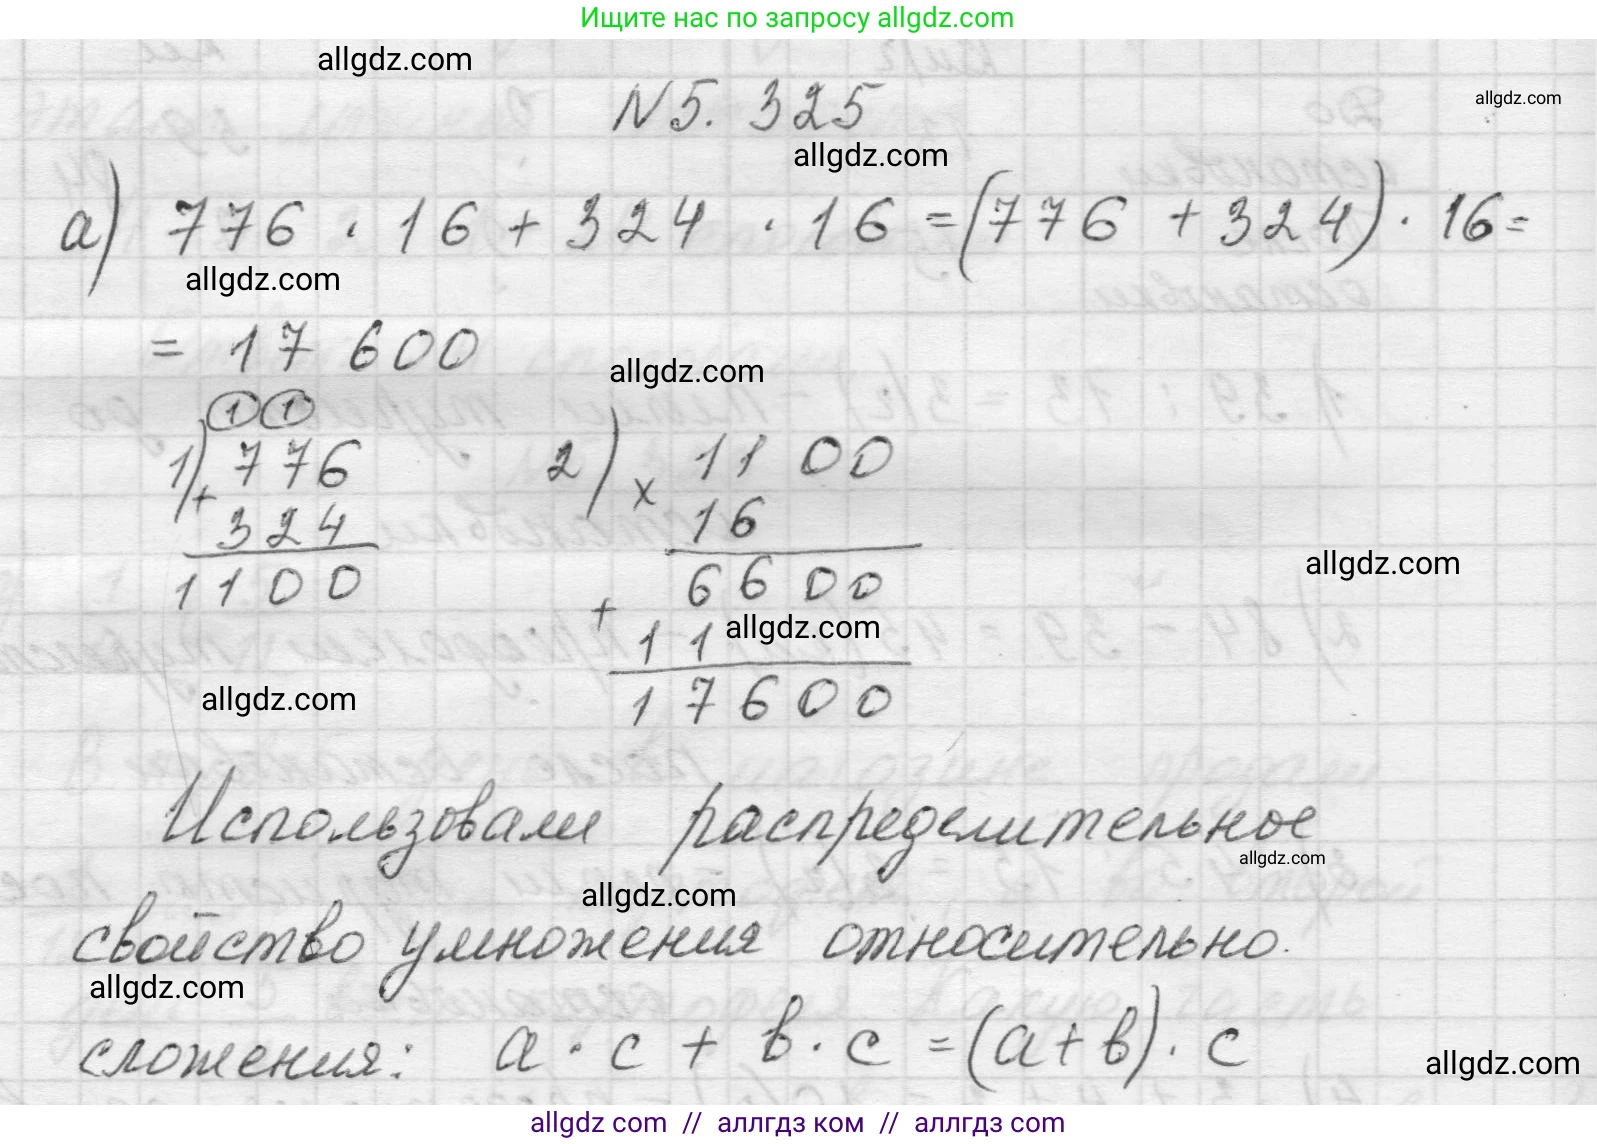 Ищите нас по запросу allgdz.com
allgdz.com
N5. 325
allgdz.com
allgdz.com
а) 776 · 16 + 324 · 16 = (776 + 324) · 16 =
allgdz.com
= 17 600
allgdz.com
1 1
1) 776
+
324
1100
2) × 1100
16
6600
+
11
allgdz.com
17600
allgdz.com
allgdz.com
Использовали распределительное
allgdz.com
allgdz.com
свойство умножения относительно.
allgdz.com
сложения: a · c + b · c = (a + b) · c
allgdz.com
allgdz com // аллгдз ком // аллгдз com